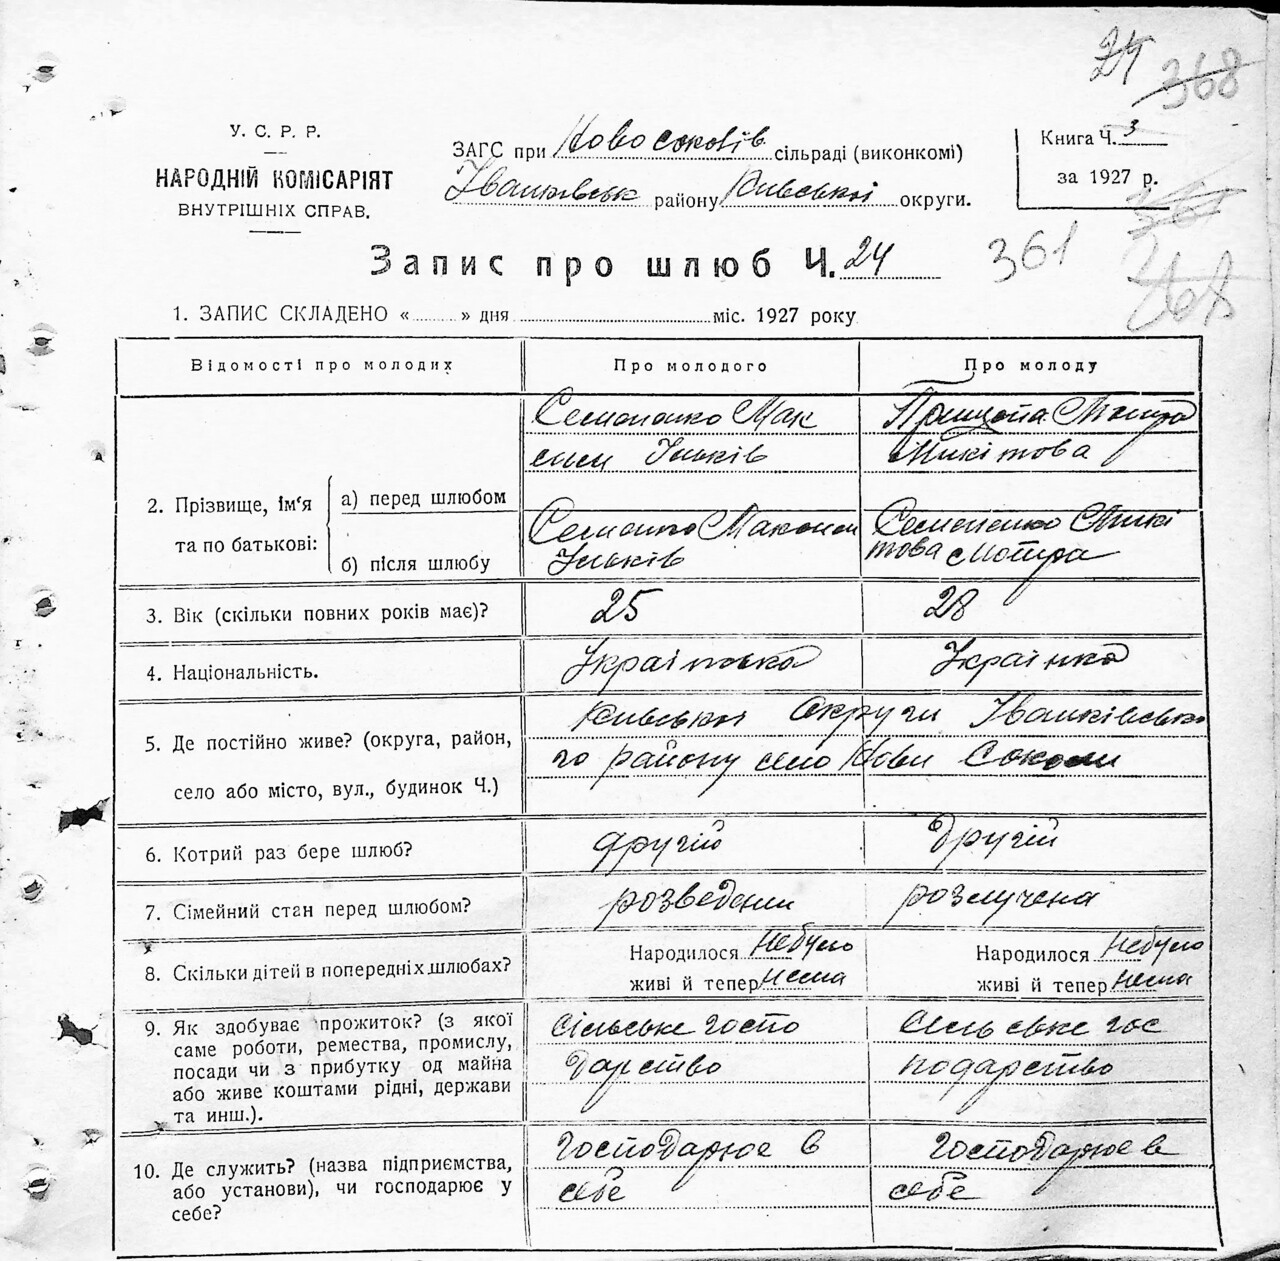 24
368
У. С. Р. Р.
НАРОДНІЙ КОМІСАРІЯТ
ВНУТРІШНІХ СПРАВ.
ЗАГС при Новосоколів сільраді (виконкомі)
Іванківськ району Київської округи.
Книга Ч. 3
за 1927 р.
Запис про шлюб Ч. 24
361
268
1. ЗАПИС СКЛАДЕНО « » дня міс. 1927 року
Відомості про молодих
Про молодого
Про молоду
2. Прізвище, ім‘я
та по батькові:
а) перед шлюбом
Семоненко Мак
сим Ільків
Мотра
Микітова
б) після шлюбу
Максим
Ільків
Семененко Микі
това Мотра
3. Вік (скільки повних років має)?
25
28
4. Національність.
Українка
5. Де постійно живе? (округа, район,
село або місто, вул., будинок Ч.)
Київської Округи Іванківсько
го району село Нови Соколи
6. Котрий раз бере шлюб?
другій
другій
7. Сімейний стан перед шлюбом?
розведени
розлучена
8. Скільки дітей в попередніх шлюбах?
Народилося небуло
живі й тепер нема
Народилося небуло
живі й тепер нема
9. Як здобуває прожиток? (з якої
саме роботи, ремества, промислу,
посади чи з прибутку од майна
або живе коштами рідні, держави
та инш.).
Сільське госпо
дарство
Сільське гос
подарство
10. Де служить? (назва підприємства,
або установи), чи господарює у
себе?
господарює в
себе
господарює в
себе